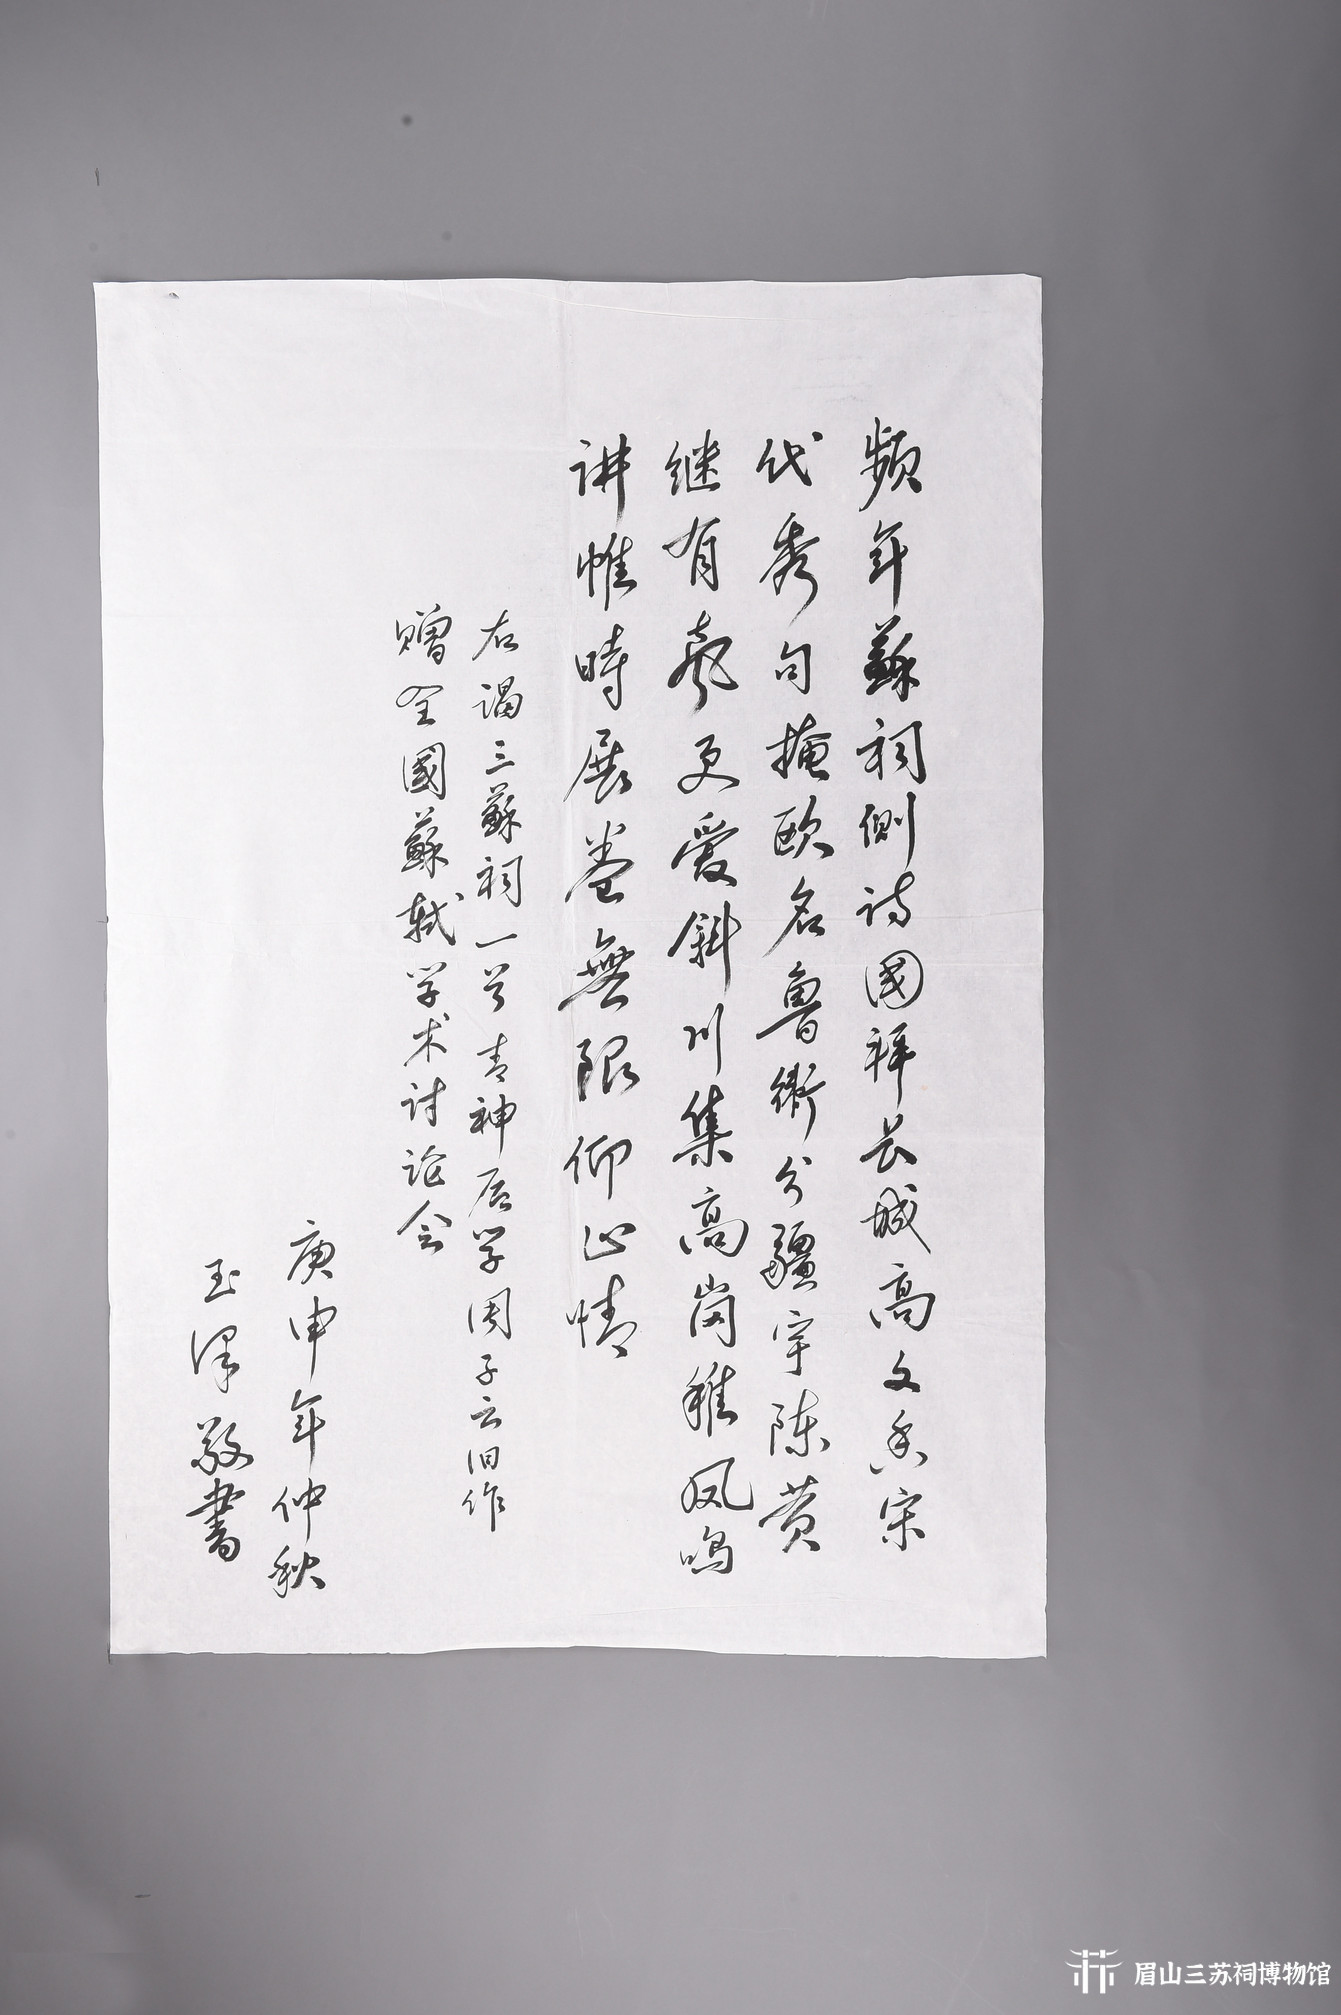 频年蘇祠側诗國拜长城高文秀宋
代秀句掩欧名鲁衛分疆宇陈黄
继有声更爱斜川集高岗稚凤鸣
讲帷時展卷無限仰止情
右谒三蘇祠一首青神后学周子云旧作
赠全國蘇轼学术讨论会
庚申年仲秋
玉泽敬書
眉山三苏祠博物馆